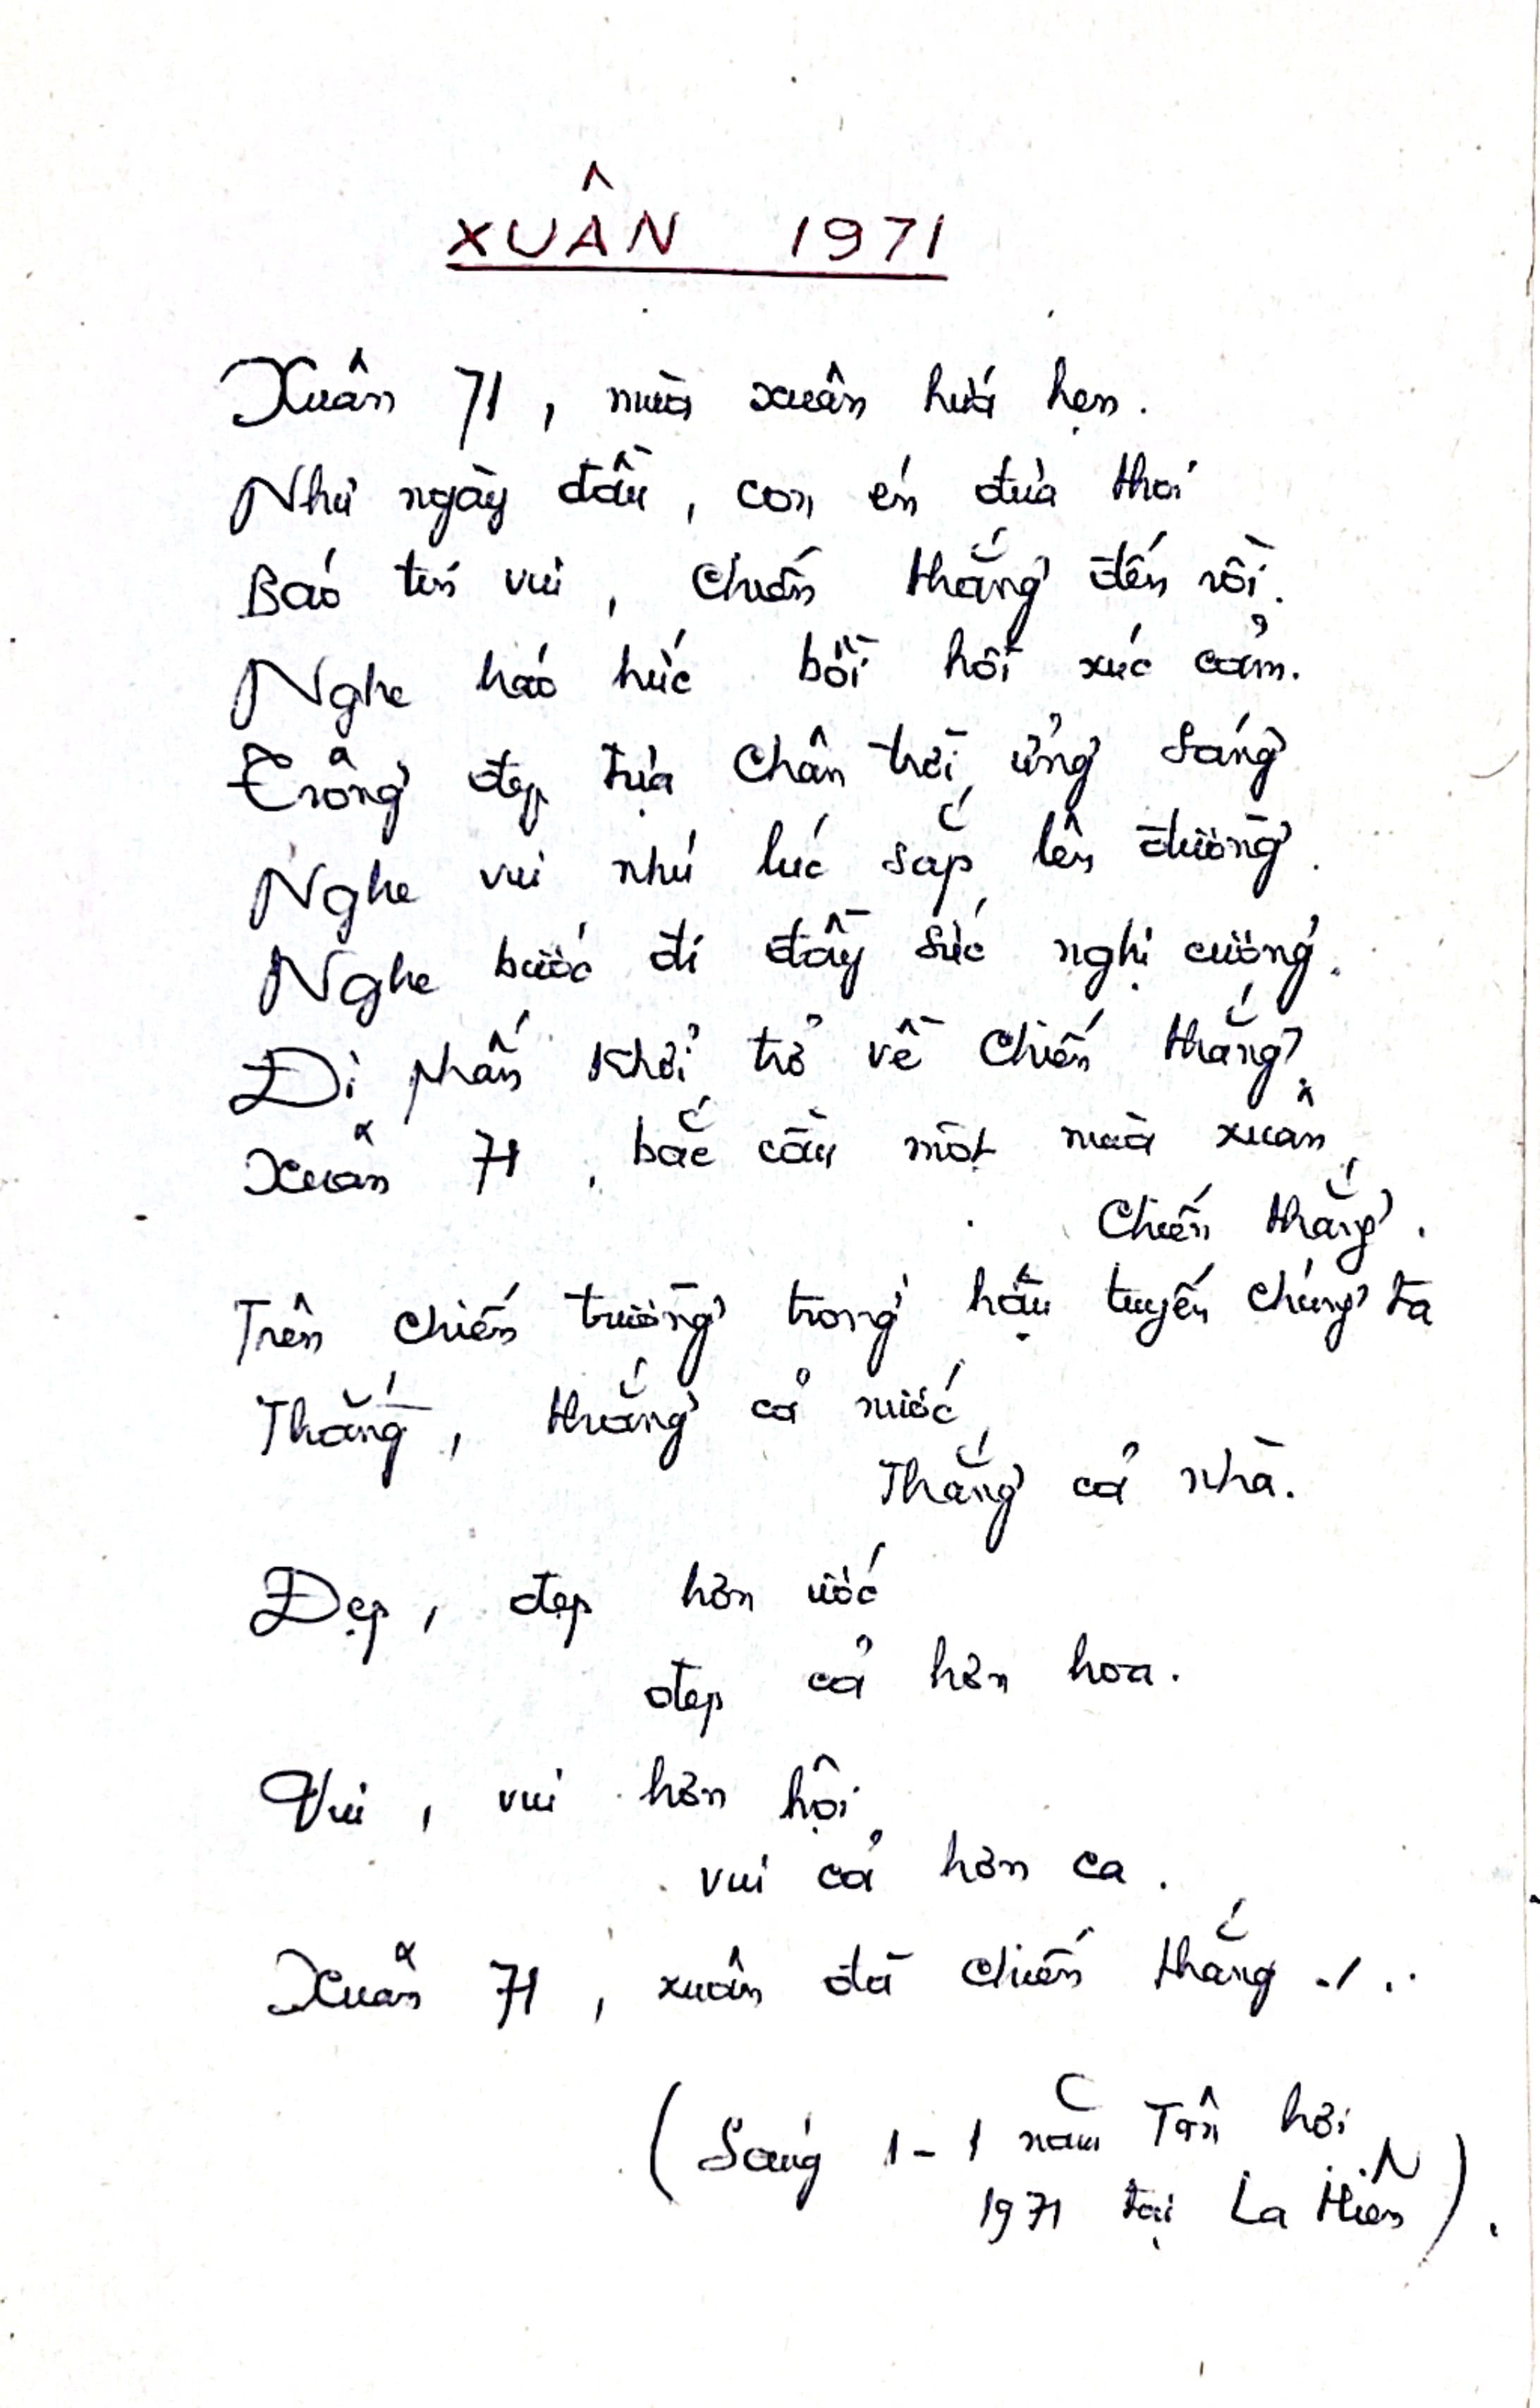 XUÂN 1971
Xuân 71, mùa xuân hứa hẹn.
Như ngày đầu, con én đưa thoi
Báo tin vui, chiến thắng đến rồi.
Nghe háo hức bồi hồi xúc cảm.
Trông đẹp tựa chân trời ửng sáng
Nghe vui như lúc sắp lên đường.
Nghe bước đi đầy sức nghị cường.
Đi phấn khởi trở về chiến thắng,
Xuân 71, bắc cầu một mùa xuân
chiến thắng.
Trên chiến trường trong hậu tuyến chúng ta
Thắng, thắng cả nước
Thắng cả nhà.
Đẹp, đẹp hơn ước
đẹp cả hơn hoa.
Vui, vui hơn hội
vui cả hơn ca.
Xuân 71, xuân đã chiến thắng ./.
(Sáng 1-1 năm Tân hợi
1971 tại La Hiên).